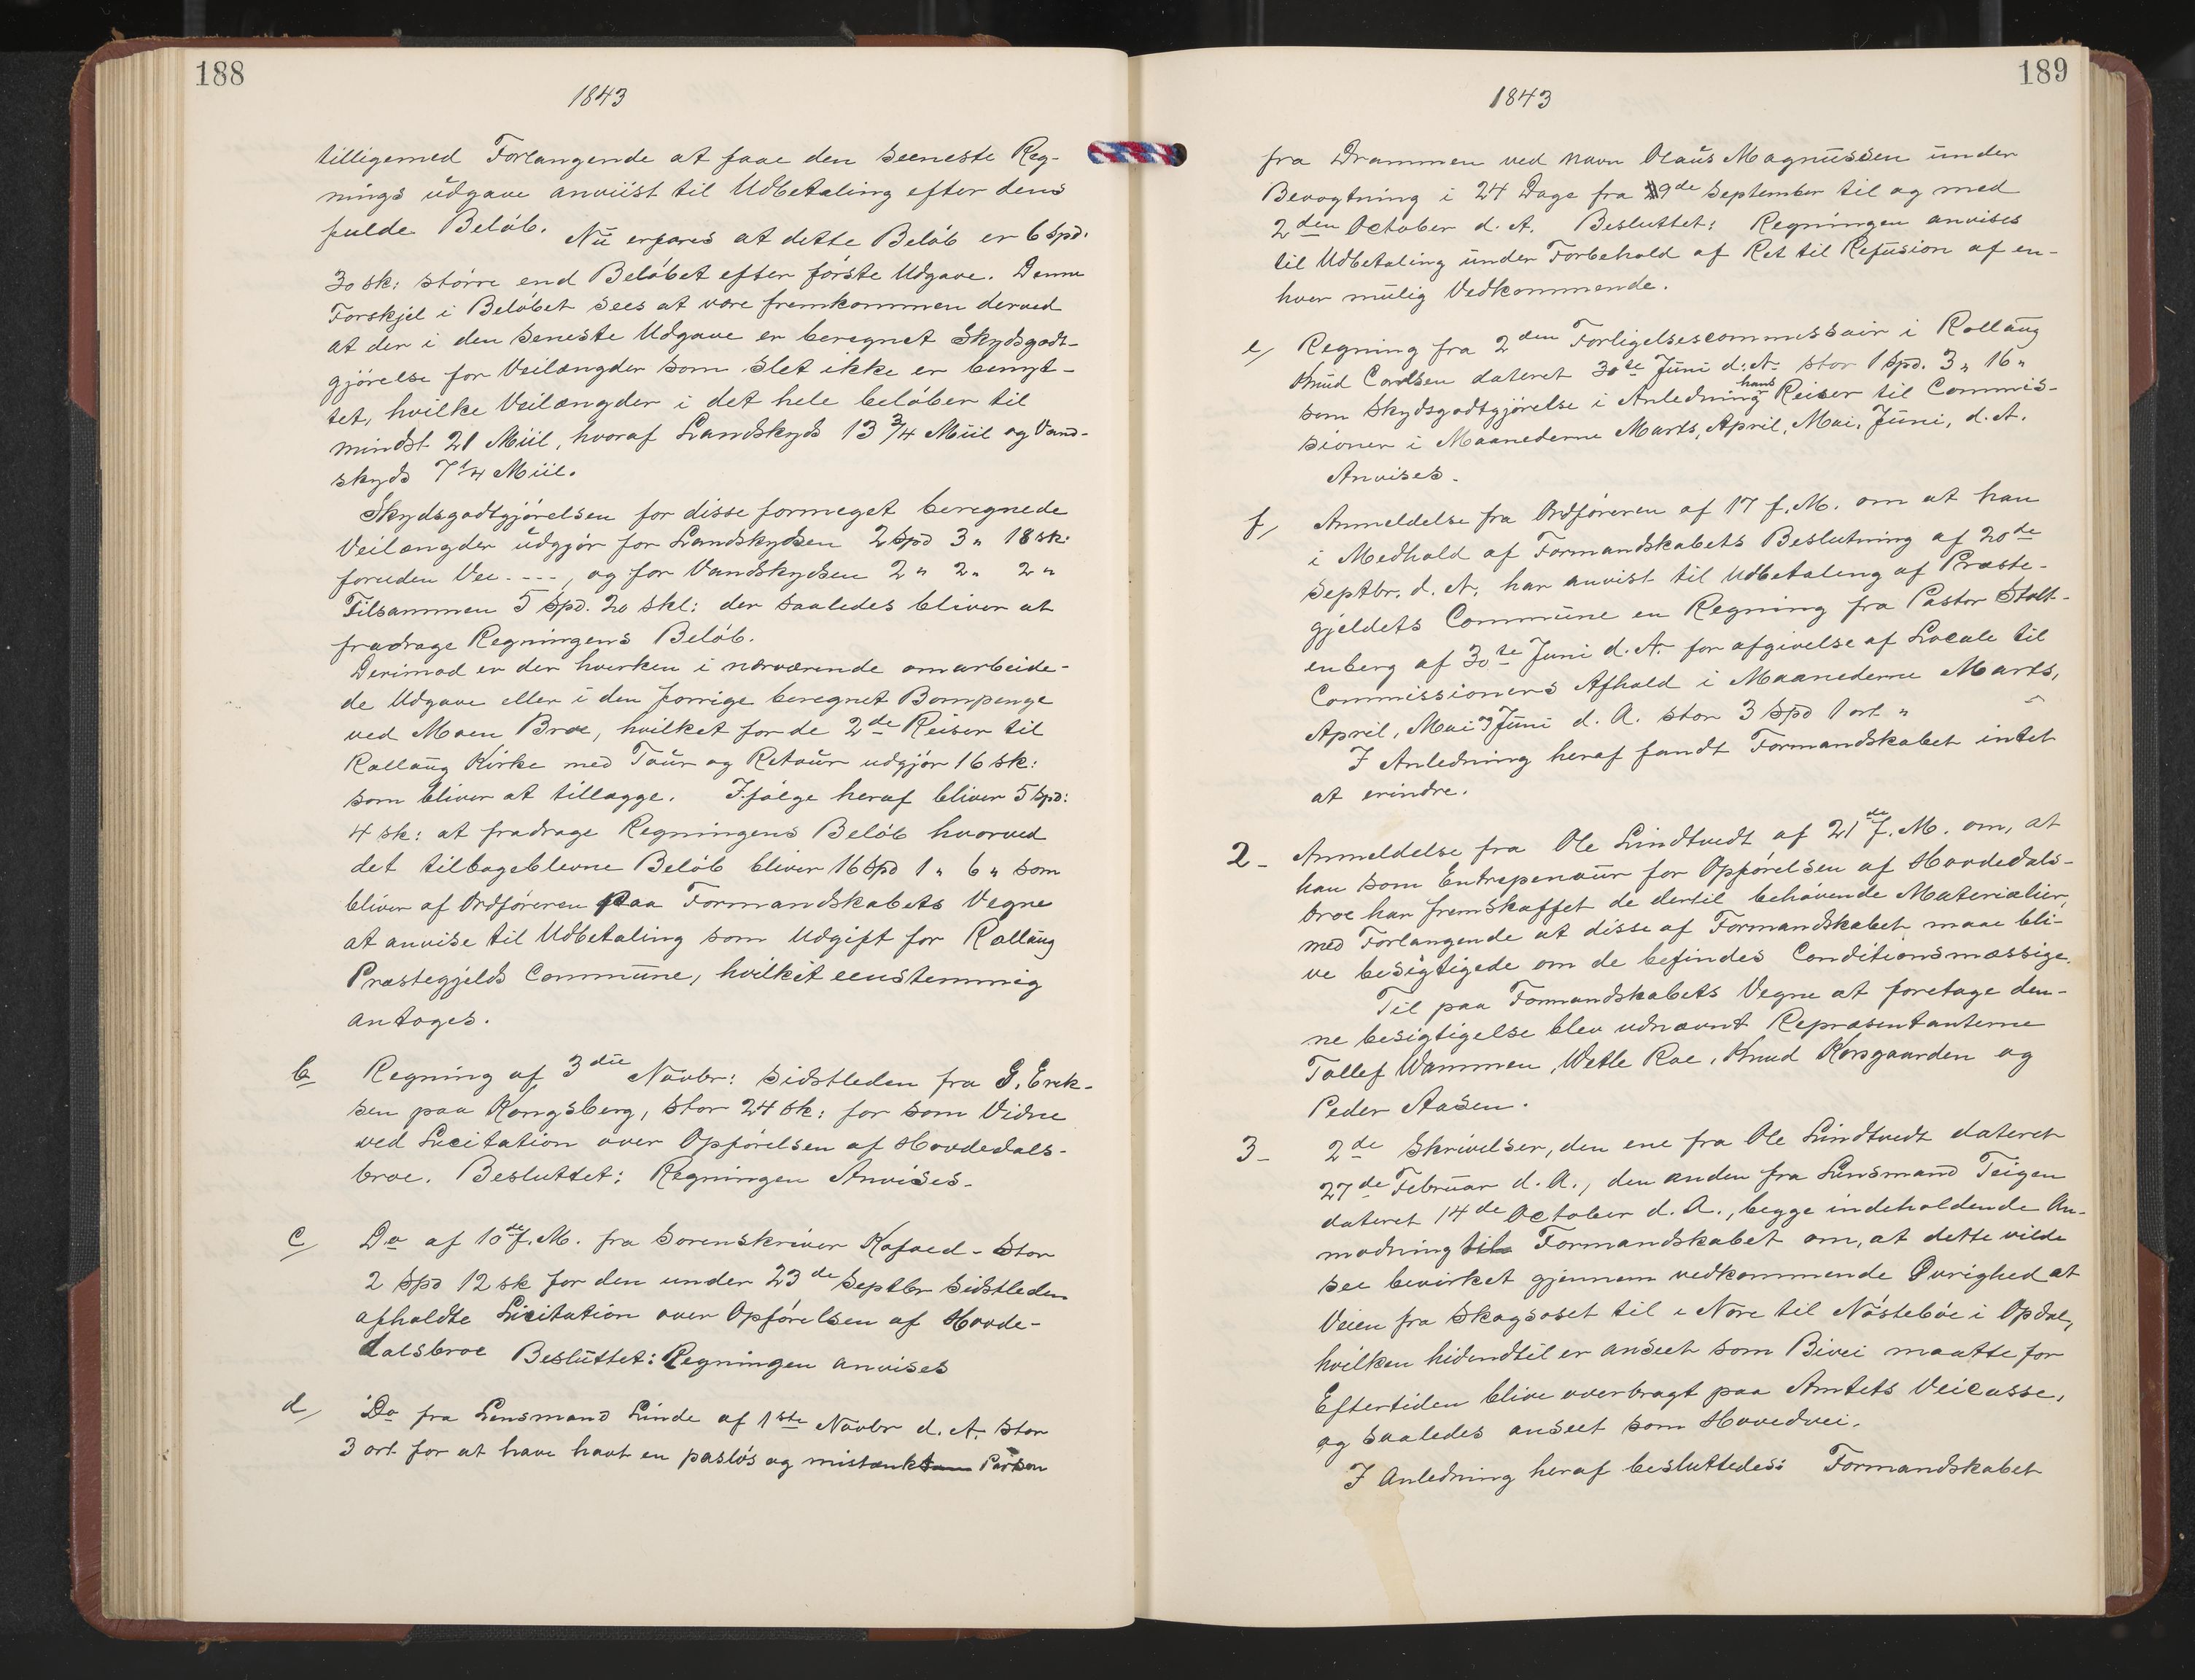 188
1843
tilligemed Forlangende at faae den seeneste Reg-
nings udgave anviist til Udbetaling efter dens
fulde Beløb. Nu erfares at dette Beløb er 6 Spd.
30 sk: større end Beløbet efter første Udgave. Denne
Forskjel i Beløbet sees at være fremkommen derved
at der i den seneste Udgave er beregnet Skydsgodt-
gjørelse for Veilængder som slet ikke er benyt-
tet, hvilke Veilængder i det hele beløber til
mindst 21 Miil, hvoraf Landskyds 13 3/4 Miil og Vand-
skyds 7 1/4 Miil.
Skydsgodtgjørelsen for disse formeget beregnede
Veilængder udgjør for Landskydsen 2 Spd 3 " 18 sk:
foruden Vee. - - - , og for Vandskydsen 2 " 2 " 2 "
Tilsammen 5 Spd. 20 skl: der saaledes bliver at
fradrage Regningens Beløb.
Derimod er der hverken i nærværende omarbeide-
de Udgave eller i den forrige beregnet Bompenge
ved Moen Broe, hvilket for de 2de Reiser til
Rollaug Kirke med Tour og Retour udgjør 16 sk:
som bliver at tillægge. Ifølge heraf bliver 5 Spd:
4 sk: at fradrage Regningens Beløb hvorved
det tilbageblevne Beløb bliver 16 Spd 1 " 6 " som
bliver af Ordføreren Paa Formandskabets Vegne
at anvise til Udbetaling som Udgift for Rollaug
Præstegjelds Commune, hvilket eenstemmig
antoges.
b Regning af 3die Novbr: sidstleden fra G. Erek-
sen paa Kongsberg, stor 24 sk: for som Vidne
ved Licitation over Opførelsen af Hovdedals-
broe. Besluttet: Regningen Anvises.
c/ Do af 10de f. M. fra Sorenskriver Kofoed - stor
2 Spd 12 sk for den under 23de Septbr sidstleden
afholdte Licitation over Opførelsen af Hovde-
dalsbroe Besluttet: Regningen anvises
d/ Do fra Lensmand Linde af 1ste Novbr d. A. stor
3 ort for at have havt en pasløs og mistænkt Person
189
1843
fra Drammen ved Navn Olaus Magnussen under
Bevogtning i 24 Dage fra 9de September til og med
2den October d. A. Besluttet: Regningen anvises
til Udbetaling under Forbehold af Ret til Refusion af en-
hver mulig Vedkommende.
e/ Regning fra 2den Forligelsescommissair i Rollaug
Knud Cordsen dateret 30te Juni d. A. stor 1 Spd. 3 " 16 "
som Skydsgodtgjørelse i Anledning hans Reiser til Commis-
sioner i Maanederne Marts, April, Mai, Juni, d. A.
Anvises.
f/ Anmeldelse fra Ordføreren af 17 f. M. om at han
i Medhold af Formandskabets Beslutning af 20de
Septbr. d. A. har anvist til Udbetaling af Præste-
gjeldets Commune en Regning fra Pastor Stolt-
enberg af 30te Juni d. A. for afgivelse af Locale til
Commissioners Afhold i Maanederne Marts,
April, Mai og Juni d. A. stor 3 Spd 1 ort "
I Anledning heraf fandt Formandskabet intet
at erindre.
2 - Anmeldelse fra Ole Lindtvedt af 21de f. M. om, at
han som Entrepenour for Opførelsen af Hovdedals-
broe har fremskaffet de dertil behøvende Materialier,
med Forlangende at disse af Formandskabet maae bli-
ve besigtigede om de befindes Conditionsmæssige.
Til paa Formandskabets Vegne at foretage den-
ne besigtigelse blev udnævnt Repræsentanterne
Tollef Wammen, Wetle Roe, Knud Korsgaarden og
Peder Aasen.
3 - 2de Skrivelser, den ene fra Ole Lindtvedt dateret
27de Februar d. A., den anden fra Lensmand Teigen
dateret 14de October d. A., begge indeholdende An-
modning til Formandskabet om, at dette vilde
see bevirket gjennem vedkommende Øvrighed at
Veien fra Skogsoset til i Nore til Nøstebøe i Opdal,
hvilken hidindtil er anseet som Bivei maatte for
Eftertiden blive overbragt paa Amtets Veicasse,
og saaledes anseet som Hovedvei.
I Anledning heraf besluttedes: Formandskabet